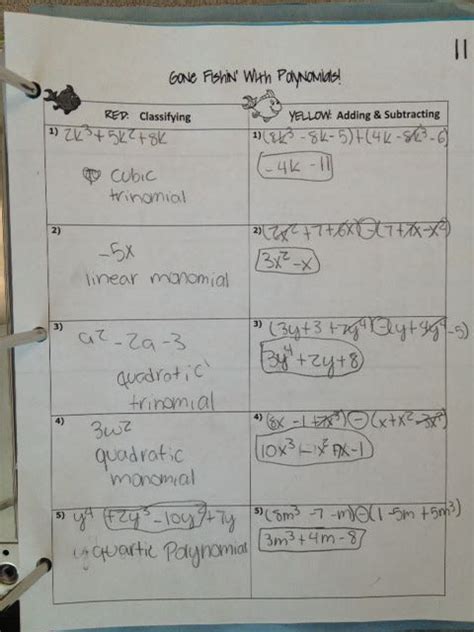 11
Gone Fishin' With Polynomials!
RED: Classifying
YELLOW: Adding & Subtracting
1) 2k³+5k²+8k
cubic
trinomial
1) (8k³ -8k-5)+(4k-8k³-6)
-4k -11
2)
-5x
linear monomial
2) (2x²+7+6x)-(7+7x-x²)
3x²-x
3)
a² -2a-3
quadratic
trinomial
3) (3y+3+7y⁴)-(y+4y⁴-5)
3y⁴+2y+8
4)
3w²
quadratic
monomial
4) (8x -1+7x³)-(x+x²-3x³)
10x³ -x² 7x-1
5) y⁴+2y³-10y²+7y
quartic Polynomial
5) (8m³ -7 -m)-(1-5m+5m³)
3m³+4m-8